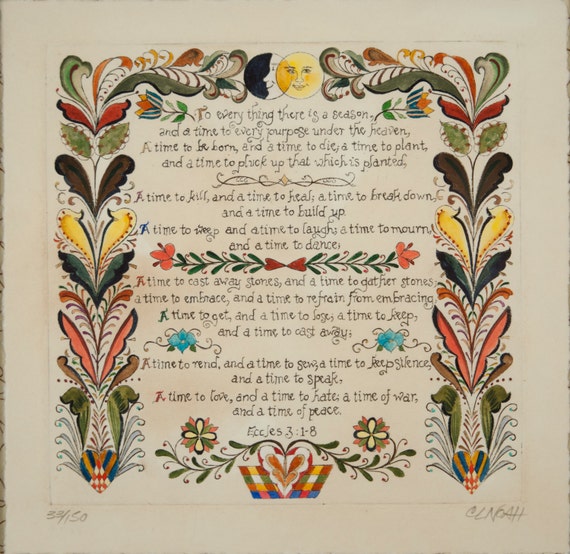 To every thing there is a season,
and a time to every purpose under the heaven,
A time to be born, and a time to die; a time to plant,
and a time to pluck up that which is planted;
A time to kill, and a time to heal; a time to break down,
and a time to build up.
A time to weep and a time to laugh; a time to mourn
and a time to dance;
A time to cast away stones, and a time to gather stones
a time to embrace, and a time to refrain from embracing
A time to get, and a time to lose; a time to keep;
and a time to cast away;
A time to rend, and a time to sew; a time to keep silence,
and a time to speak,
A time to love, and a time to hate; a time of war,
and a time of peace.
Eccles 3:1-8
33/150
CLNOAH